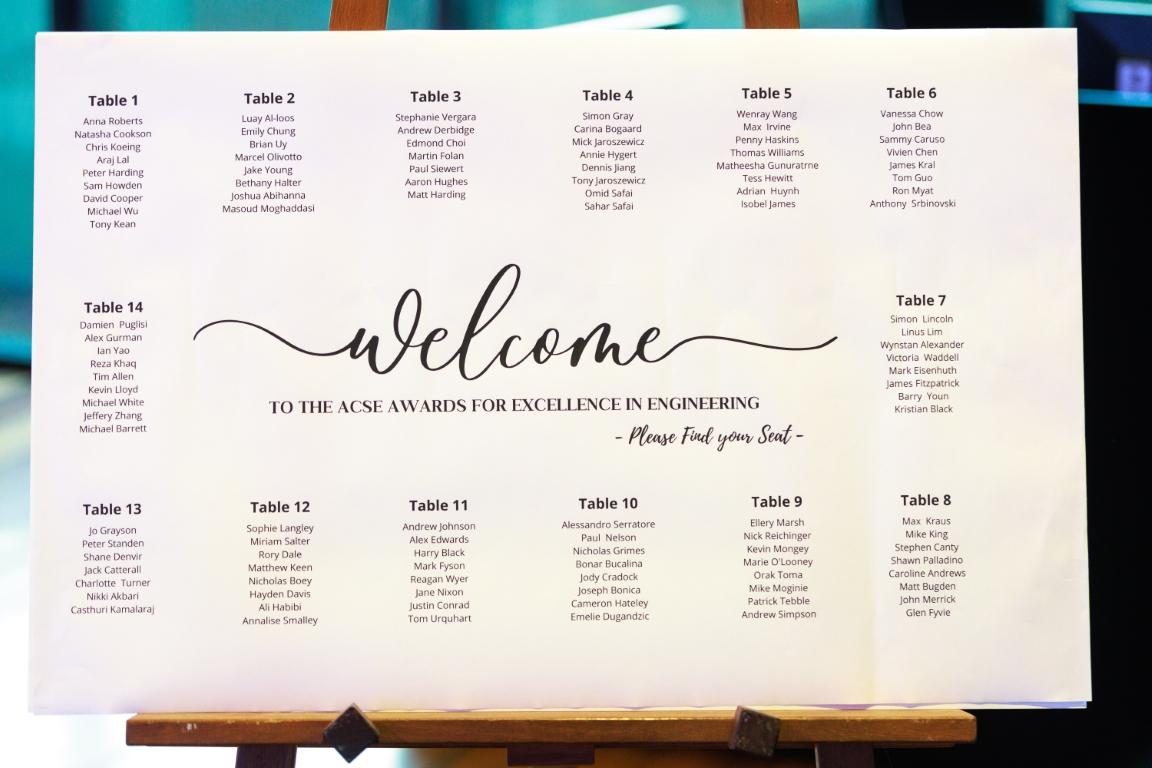 Table 1
Anna Roberts
Natasha Cookson
Chris Koeing
Araj Lal
Peter Harding
Sam Howden
David Cooper
Michael Wu
Tony Kean
Table 2
Luay Al-loos
Emily Chung
Brian Uy
Marcel Olivotto
Jake Young
Bethany Halter
Joshua Abihanna
Masoud Moghaddasi
Table 3
Stephanie Vergara
Andrew Derbidge
Edmond Choi
Martin Folan
Paul Siewert
Aaron Hughes
Matt Harding
Table 4
Simon Gray
Carina Bogaard
Mick Jaroszewicz
Annie Hygert
Dennis Jiang
Tony Jaroszewicz
Omid Safai
Sahar Safai
Table 5
Wenray Wang
Max Irvine
Penny Haskins
Thomas Williams
Matheesha Gunuratrne
Tess Hewitt
Adrian Huynh
Isobel James
Table 6
Vanessa Chow
John Bea
Sammy Caruso
Vivien Chen
James Kral
Tom Guo
Ron Myat
Anthony Srbinovski
Table 14
Damien Puglisi
Alex Gurman
Ian Yao
Reza Khaq
Tim Allen
Kevin Lloyd
Michael White
Jeffery Zhang
Michael Barrett
welcome
TO THE ACSE AWARDS FOR EXCELLENCE IN ENGINEERING
- Please Find your Seat -
Table 7
Simon Lincoln
Linus Lim
Wynstan Alexander
Victoria Waddell
Mark Eisenhuth
James Fitzpatrick
Barry Youn
Kristian Black
Table 13
Jo Grayson
Peter Standen
Shane Denvir
Jack Catterall
Charlotte Turner
Nikki Akbari
Casthuri Kamalaraj
Table 12
Sophie Langley
Miriam Salter
Rory Dale
Matthew Keen
Nicholas Boey
Hayden Davis
Ali Habibi
Annalise Smalley
Table 11
Andrew Johnson
Alex Edwards
Harry Black
Mark Fyson
Reagan Wyer
Jane Nixon
Justin Conrad
Tom Urquhart
Table 10
Alessandro Serratore
Paul Nelson
Nicholas Grimes
Bonar Bucalina
Jody Cradock
Joseph Bonica
Cameron Hateley
Emelie Dugandzic
Table 9
Ellery Marsh
Nick Reichinger
Kevin Mongey
Marie O'Looney
Orak Toma
Mike Moginie
Patrick Tebble
Andrew Simpson
Table 8
Max Kraus
Mike King
Stephen Canty
Shawn Palladino
Caroline Andrews
Matt Bugden
John Merrick
Glen Fyvie